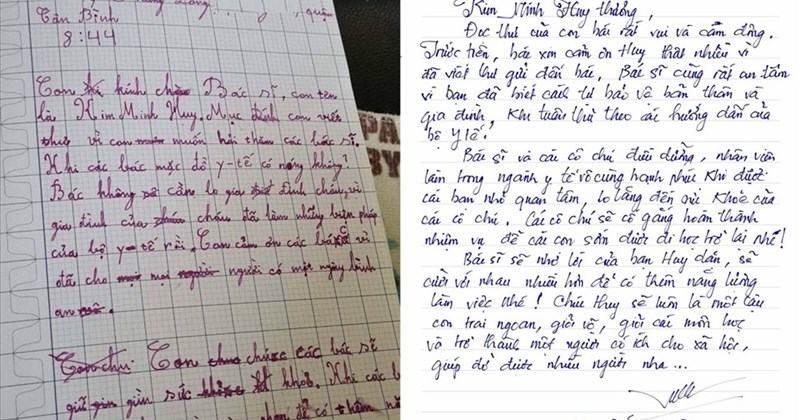 quận
Tân Bình
8:44
Con kính chào Bác sĩ, con tên
là Kim Minh Huy. Mục đích con viết
thư vì con muốn hỏi thăm các bác sĩ.
Khi các bác mặc đồ y-tế có nóng không?
Bác không cần lo gia đình cháu, vì
gia đình của cháu đã làm những biện pháp
của bộ y-tế rồi. Con cảm ơn các bác vì
đã cho mọi người có một ngày bình
an
Con chúc các bác sĩ
giữ gìn sức khoẻ. Khi các b
để có thêm nă
Kim Minh Huy thương,
Đọc thư của con bác rất vui và cảm động.
Trước tiên, bác xin cảm ơn Huy thật nhiều vì
đã viết thư gửi đến bác, Bác sĩ cũng rất an tâm
vì bạn đã biết cách tự bảo vệ bản thân và
gia đình, khi tuân thủ theo các hướng dẫn của
bộ Y tế!
Bác sĩ và các cô chú điều dưỡng, nhân viên
làm trong ngành y tế vô cùng hạnh phúc khi được
các bạn nhỏ quan tâm, lo lắng đến sức khỏe của
các cô chú. Các cô chú sẽ cố gắng hoàn thành
nhiệm vụ để các con sớm được đi học trở lại nhé!
Bác sĩ sẽ nhớ lời của bạn Huy dặn, sẽ
cười với nhau nhiều hơn để có thêm năng lượng
làm việc nhé! Chúc Huy sẽ luôn là một cậu
con trai ngoan, giỏi võ, giỏi các môn học
và trở thành một người có ích cho xã hội,
giúp đỡ được nhiều người nha...